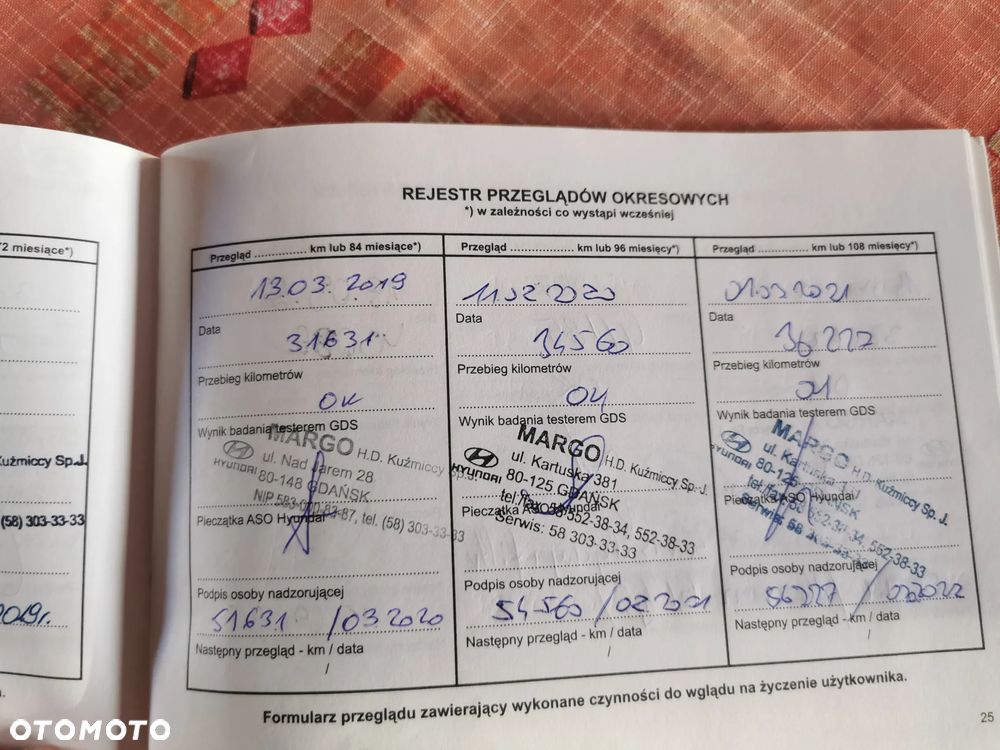 REJESTR PRZEGLĄDÓW OKRESOWYCH
*) w zależności co wystąpi wcześniej
72 miesiące*)
Kuźmiccy Sp.J.
(58) 303-33-33
2019r.
Przegląd .............. km lub 84 miesiące*)
13.03.2019
Data
31631
Przebieg kilometrów
OK
Wynik badania testerem GDS
MARGO H.D. Kuźmiccy Sp.J.
HYUNDAI
ul. Nad Jarem 28
80-148 GDAŃSK
NIP 583-000-83-87, tel. (58) 303-33-33
Pieczątka ASO Hyundai
Podpis osoby nadzorującej
51631 /03 2020
Następny przegląd - km / data
/
Przegląd .................. km lub 96 miesięcy*)
11.02 2020
Data
34560
Przebieg kilometrów
OK
Wynik badania testerem GDS
MARGO H.D. Kuźmiccy Sp. J.
HYUNDAI
ul. Kartuska 381
80-125 GDAŃSK
tel./fax 58 552-38-34, 552-38-33
Serwis: 58 303-33-33
Pieczątka ASO Hyundai
Podpis osoby nadzorującej
54560 /02.2021
Następny przegląd - km / data
/
Przegląd .............. km lub 108 miesięcy*)
01.03 2021
Data
36227
Przebieg kilometrów
Wynik badania testerem GDS
MARGO H.D. Kuźmiccy Sp. J.
HYUNDAI
ul. Kartuska
80-125 GDAŃSK
58 552-38-34, 552-38-33
Serwis: 58
Pieczątka ASO Hyundai
Podpis osoby nadzorującej
56227 / 2022
Następny przegląd - km / data
/
Formularz przeglądu zawierający wykonane czynności do wglądu na życzenie użytkownika.
25
OTOMOTO